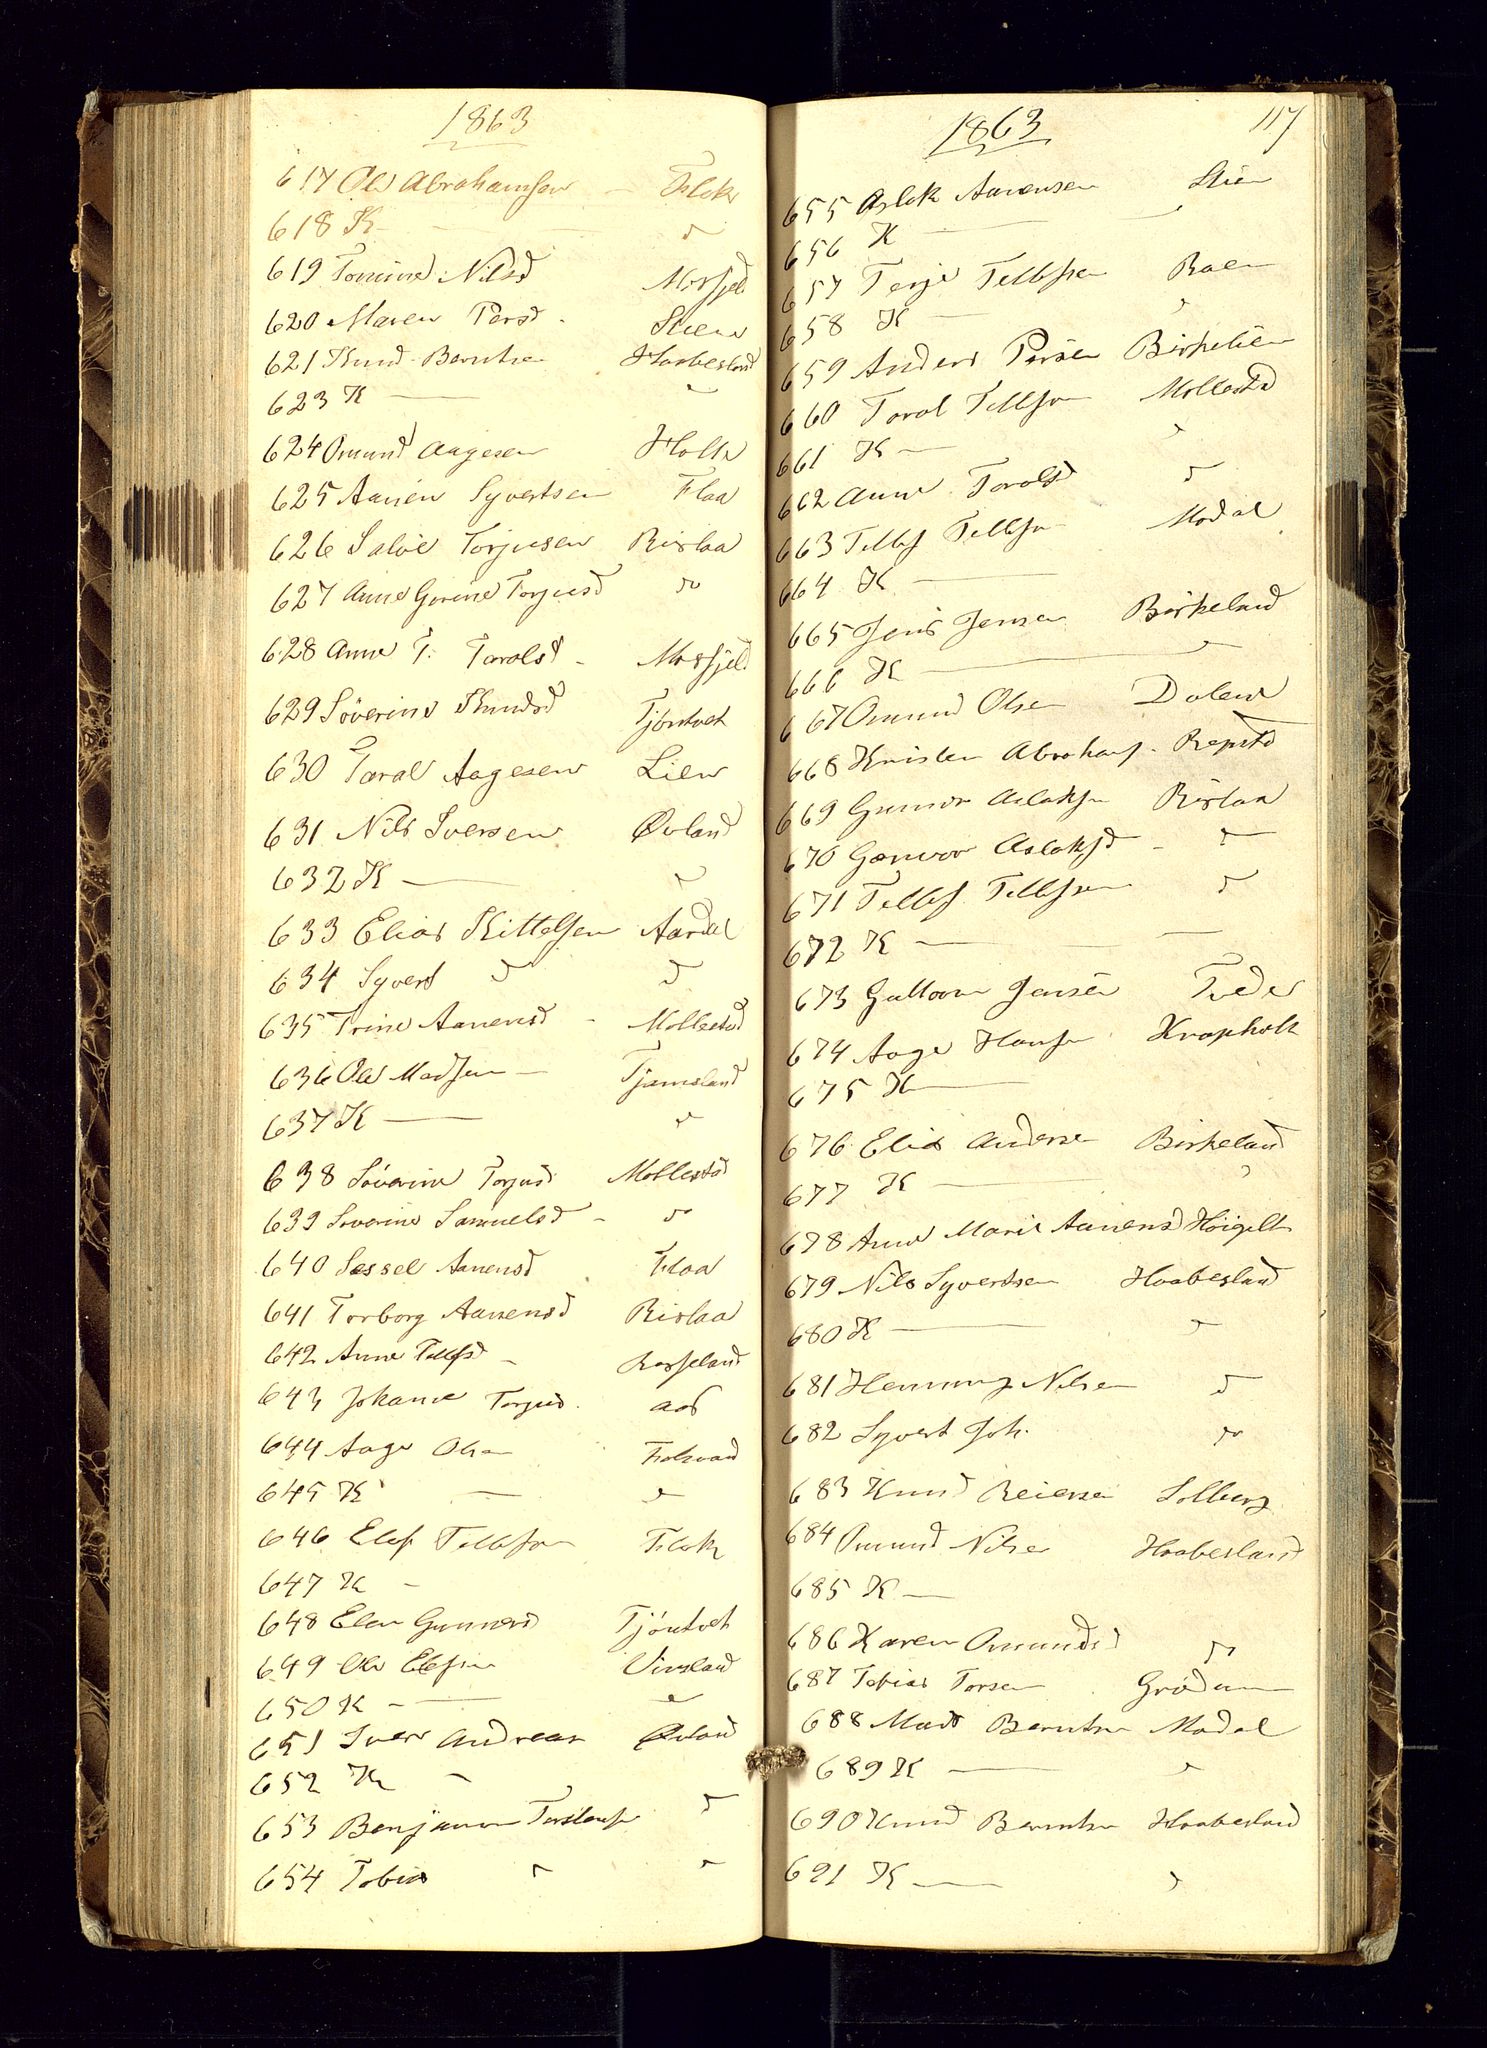 1863
617 Ole Abrahamsen — Flak
618 K — "
619 Tomine Nilsd Mosfjeld
620 Maren Persd - Stien
621 Knud Berntsen Haabesland
623 K — "
624 Omund Aagesen Holte
625 Aanen Syvertsen Flaa
626 Salve Torjusen Rislaa
627 Anne Gurine Torjusd do
628 Anne T. Taralsd - Mosfjeld
629 Söverine Knudsd Tjöntvet
630 Taral Aagesen Lien
631 Nils Iversen Øvland
632 K — "
633 Elias Kittelsen Aardal
634 Syvert do do
635 Trine Aanensd - Mollestad
636 Ole Madsen — Tjamsland
637 K — "
638 Söverine Torjusd Mollestd
639 Soverine Samuelsd - do
640 Sessel Aanensd Flaa
641 Torborg Aanensd Rislaa
642 Anne Tellfsd -
643 Johanne Torjusd. Aas
644 Aage Olsen
645 K — "
646 Elef Tellefsen Flak
647 K -
648 Elen Gunnersd Tjöntvet
649 Ole Elefsen Vivsland
650 K - — "
651 Iver Andreas Øvland
652 K -
653 Benjamin Torstensen do
654 Tobias " "
1863 117
655 Aslak Aanensen Stien
656 K —
657 Terje Tellefsen Raen
658 K — "
659 Anders Persen Birkelien
660 Taral Tellefsen Mollestd
661 K — "
662 Anne Taralsd do
663 Tellef Tellefsen Modal
664 K —
665 Jens Jensen Birkeland
666 K — "
667 Omund Olsen Dalen
668 Kristen Abrahams. Repstd
669 Gunnar Aslaksen Rislaa
670 Gunvor Aslaksd - do
671 Tellef Tellefsen do
672 K — —
673 Guttorm Jensen Tveder
674 Aage Hansen Knapholt
675 K —
676 Elias Andersen Birkeland
677 K — "
678 Anne Marie Aanensd Höigilt
679 Nils Syvertsen Haabesland
680 K — "
681 Henning Nilsen do
682 Syvert Joh. do
683 Knud Reiersen Solberg
684 Omund Nilsen Haabesland
685 K —
686 Karen Omundsd do
687 Tobias Torsen Grödum
688 Mads Berntsen Modal
689 K — "
690 Knud Berntsen Haabesland
691 K — "